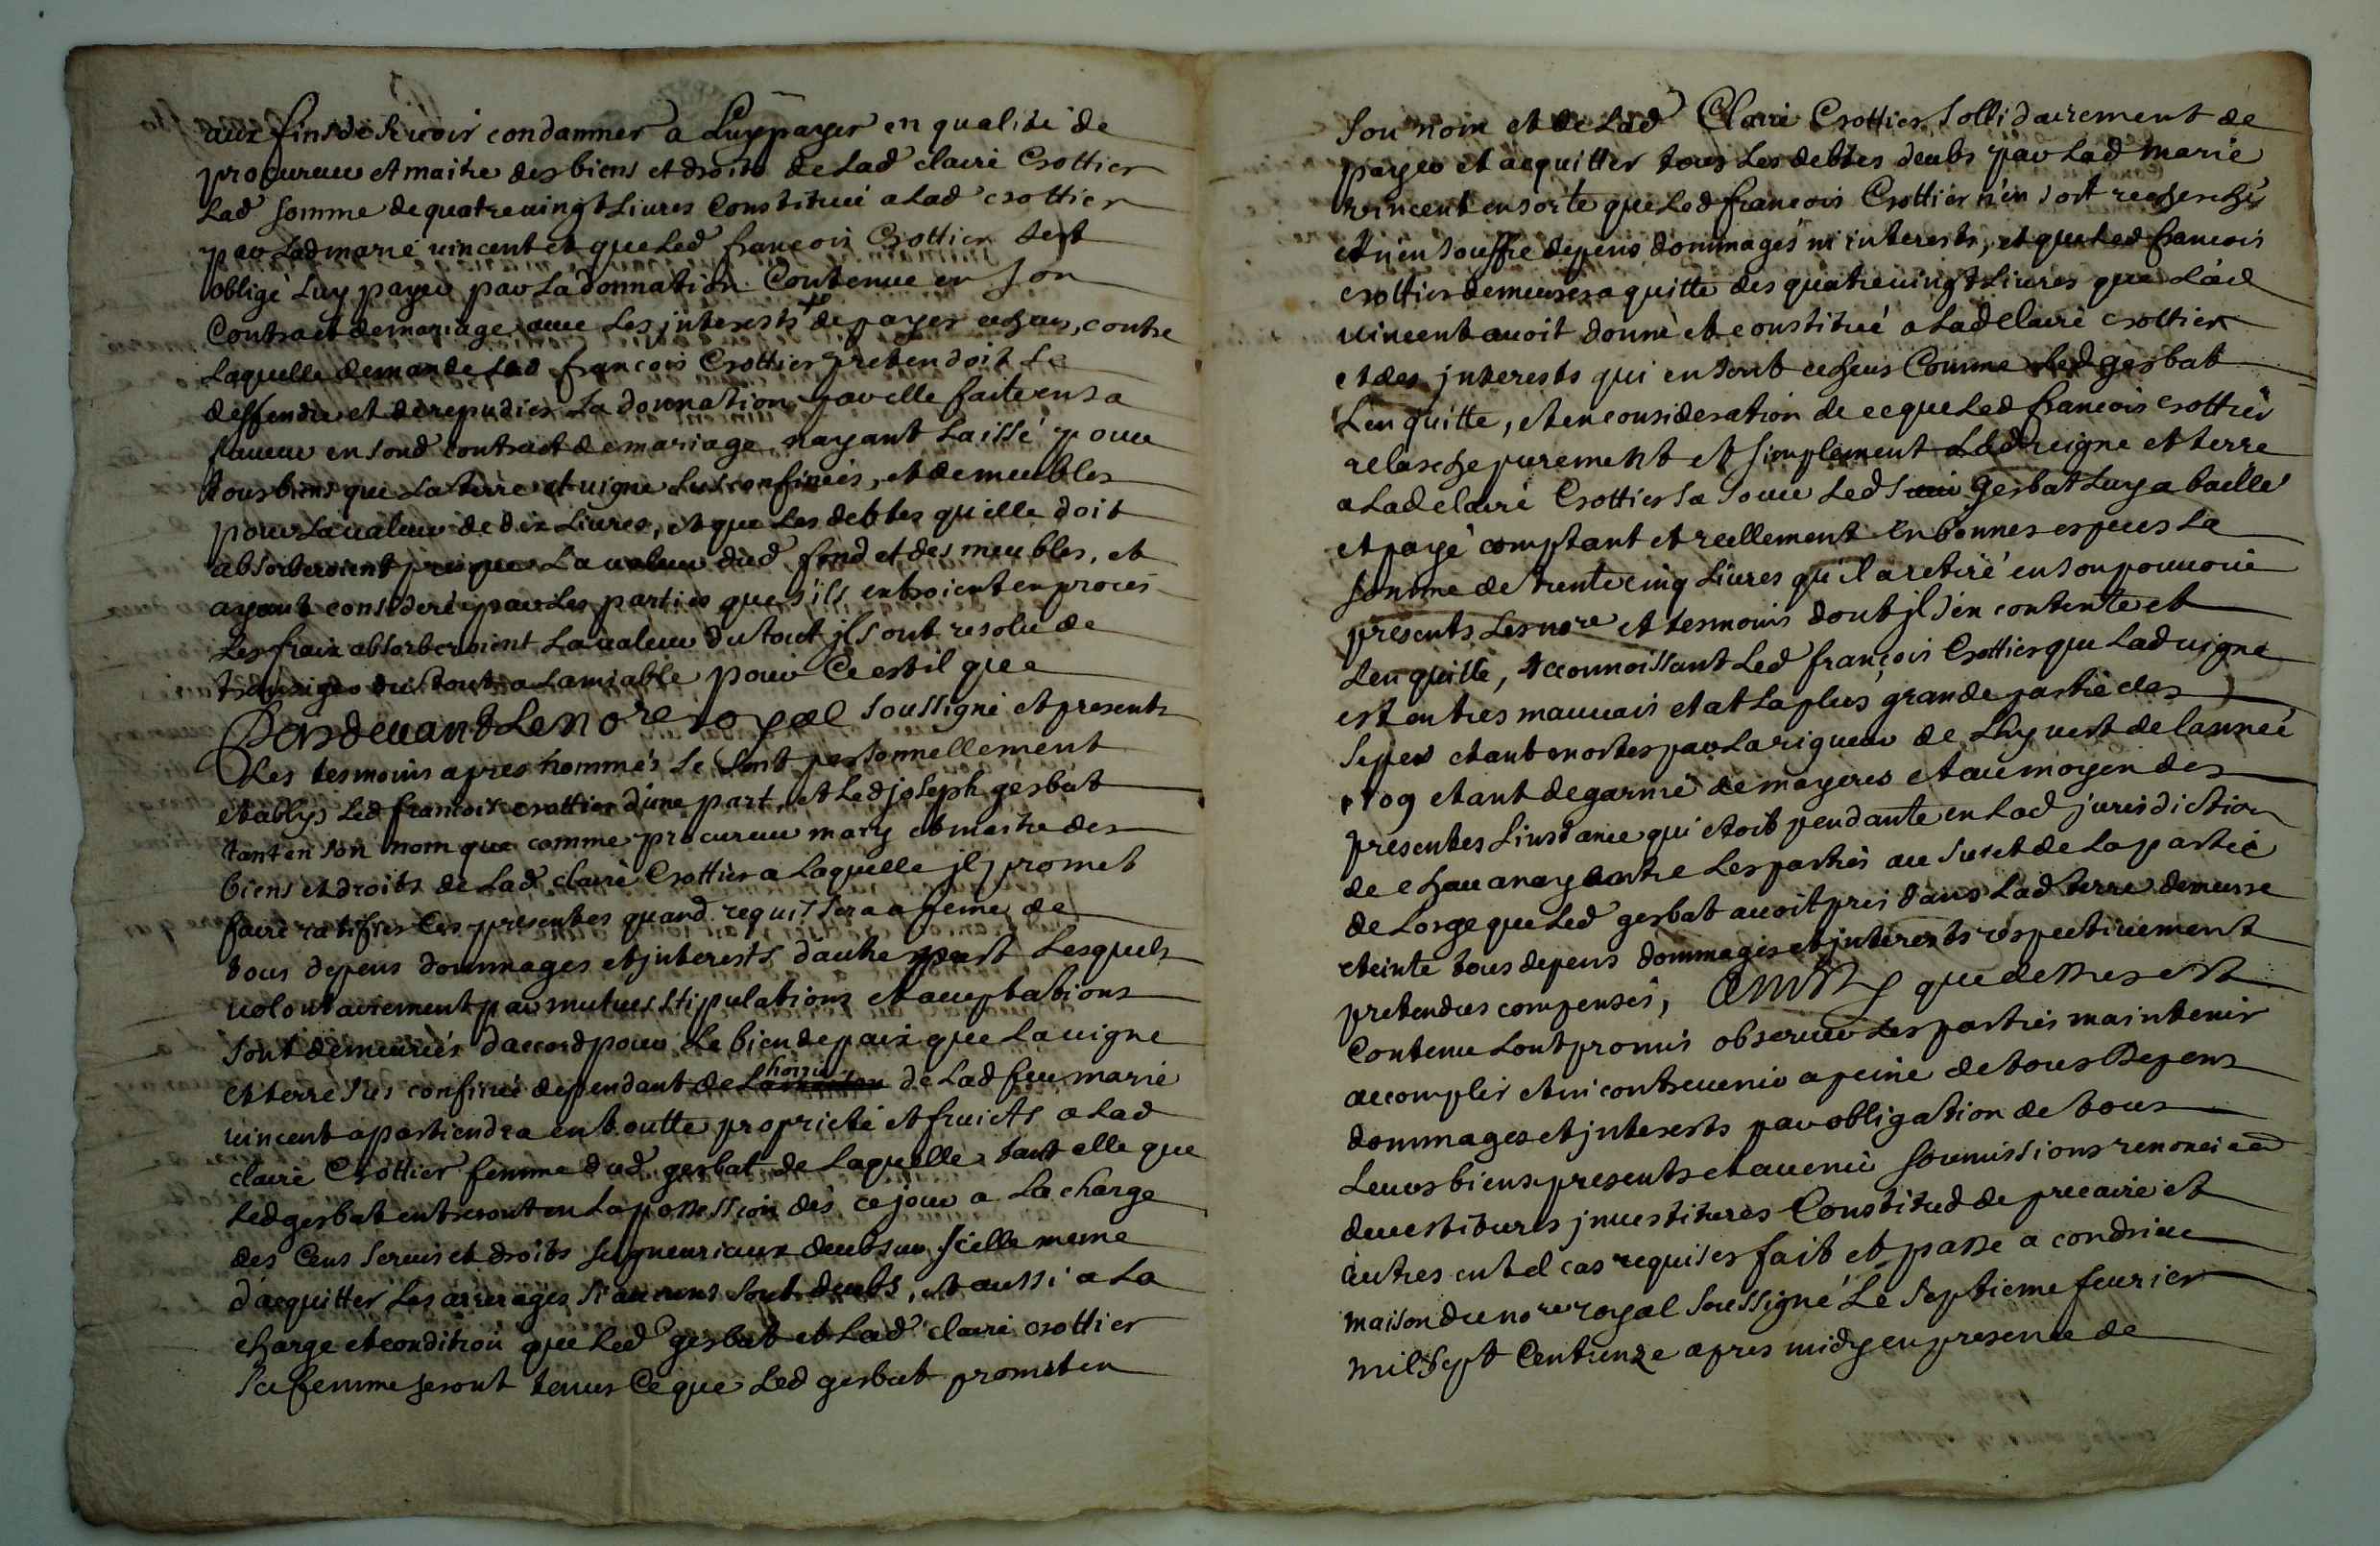 aux fins de se voir condamner a Luy payer en qualité de
procureur et maitre des biens et droits de Lad claire Crottier
Lad somme de quatre uingt Liures Constitué a Lad crottier
par Lad marie uincent et que Led françois Crottier s'est
obligé Luy payer par La donnation Contenue en son
Contract de mariage auec Les jnterests + de payer echeus, contre
Laquelle demande Led françois Crottier pretendoit se
deffendre et de repudier La donnation par elle faite en sa
faueur en sond contract de mariage nayant Laissé pour
tous biens que La terre et uigne sus confinées, et de meubles
pour La ualeur de dix Liures, et que Les debtes qu'elle doit
absorberoient presque La ualeur dud fond et des meubles, et
ayant consideré par Les parties que s'ils entroient en proces
Les fraix absorberoient La ualeur du tout jls ont resolu de
transiger du tout a Lamiable pour Ce est il que
Pardeuant Le nore royal soussigné et presents
Les tesmoins apres nommés se sont personnellement
establys Led francois crottier d'une part, et Led joseph gerbat
tant en son nom que comme procureur mary et maitre des
biens et droits de Lad claire Crottier a Laquelle jl promet
faire ratifier Ces presentes quand requis sera a peine de
tous depens dommages et jnterests d'autre part Lesquels
uolontairement par mutues stipulations et acceptations
sont demeurés d'accord pour Le bien de paix que La uigne
et terre sus confinée dependant de hoirie de Lad feue marie
uincent apartiendra en toutte proprieté et fruicts a Lad
claire Crottier femme dud gerbat de Laquelle tant elle que
Led gerbat entreront en La possession dès ce jour a La charge
des Cens seruis et droits seigneuriaux deubs sur jcelle meme
d'acquitter Les arrerages si aucuns sont deubs, et aussi a La
charge et condition que Led gerbat et Lad claire crottier
sa femme seront tenus Ce que Led gerbat promet en
son nom et de Lad Claire Crottier sollidairement de
payer et acquitter tous Les debtes deubs par Lad marie
uincent en sorte que Led françois Crottier n'en soit recherché
et n'en souffre depens dommages ni interests, et que Led francois
crottier demeurera quitte des quatre uingt Liures que Lad
uincent auoit donné et constitué a Lad Claire crottier
et des jnterests qui en sont echeus Comme Led gerbat
L'en quitte, et en consideration de ce que Led francois crottier
relasche purement et simplement Lad uigne et terre
a Lad claire Crottier sa soeur Led gerbat Luy a baillé
et payé comptant et reellement en bonnes especes La
somme de trente cinq Liures qu'il a retiré en son pouuoir
presents Les nore et tesmoins dont jl s'en contente et
L'en quitte, reconnoissant Led françois Crottier que Lad uigne
est en tres mauuais etat La plus grande partie des
seps etant mortes par La rigueur de L'hyuert de Lannée
1709 etant degarnie de mayeres et au moyen des
presentes L'instance qui etoit pendante en Lad jurisdiction
de chauanay entre Les parties au suiet de La partie
de Lorge que Led gerbat auoit pris dans Lad terre demeure
eteinte tous depens dommages et jnterests respectiuement
pretendus compensés, Ainsy que dessus est
Contenu L'ont promis obseruer Les parties maintenir
accomplir et ni contreuenir a peine de tous Depens
dommages et jnterests par obligation de tous
Leurs biens presents et auenir soumissions renonciaõ
deuestitures jnuestitures Constitud de precaire et
autres en tel cas requises fait et passé a condrieu
maison du nore royal soussigné Le septieme feurier
mil sept Cent unze apres midy en presence de